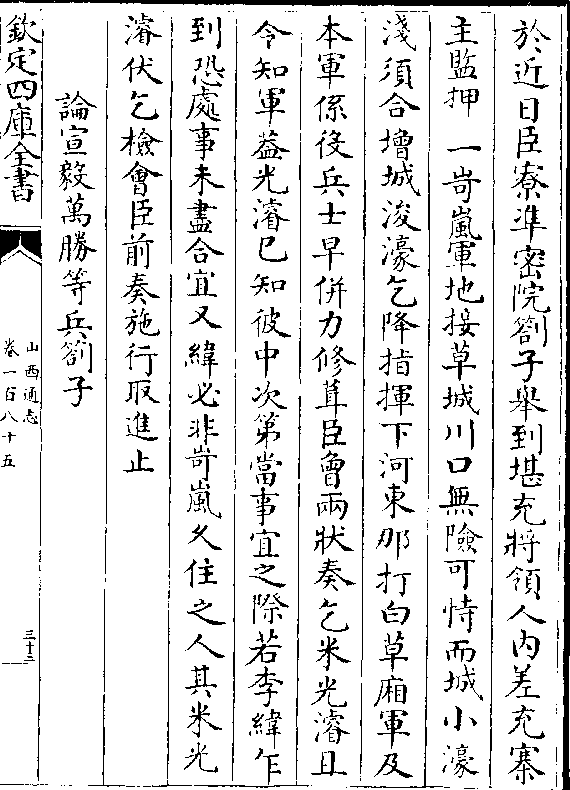 於近日臣寮準密院劄子舉到堪充將領人內差充寨
主監押　一岢嵐軍地接草城川口無險可恃而城小濠
淺須合增城浚濠乞降指揮下河東那打白草廂軍及
本軍係役兵士早併力修葺臣曾兩狀奏乞米光濬且
令知軍葢光濬已知彼中次第當事宜之際若李緯乍
到恐處事未盡合宜又緯必非岢嵐久住之人其米光
濬伏乞檢會臣前奏施行取進止
論宣毅萬勝等兵劄子
欽定四庫全書
山西通志
卷一百八十五
三十三